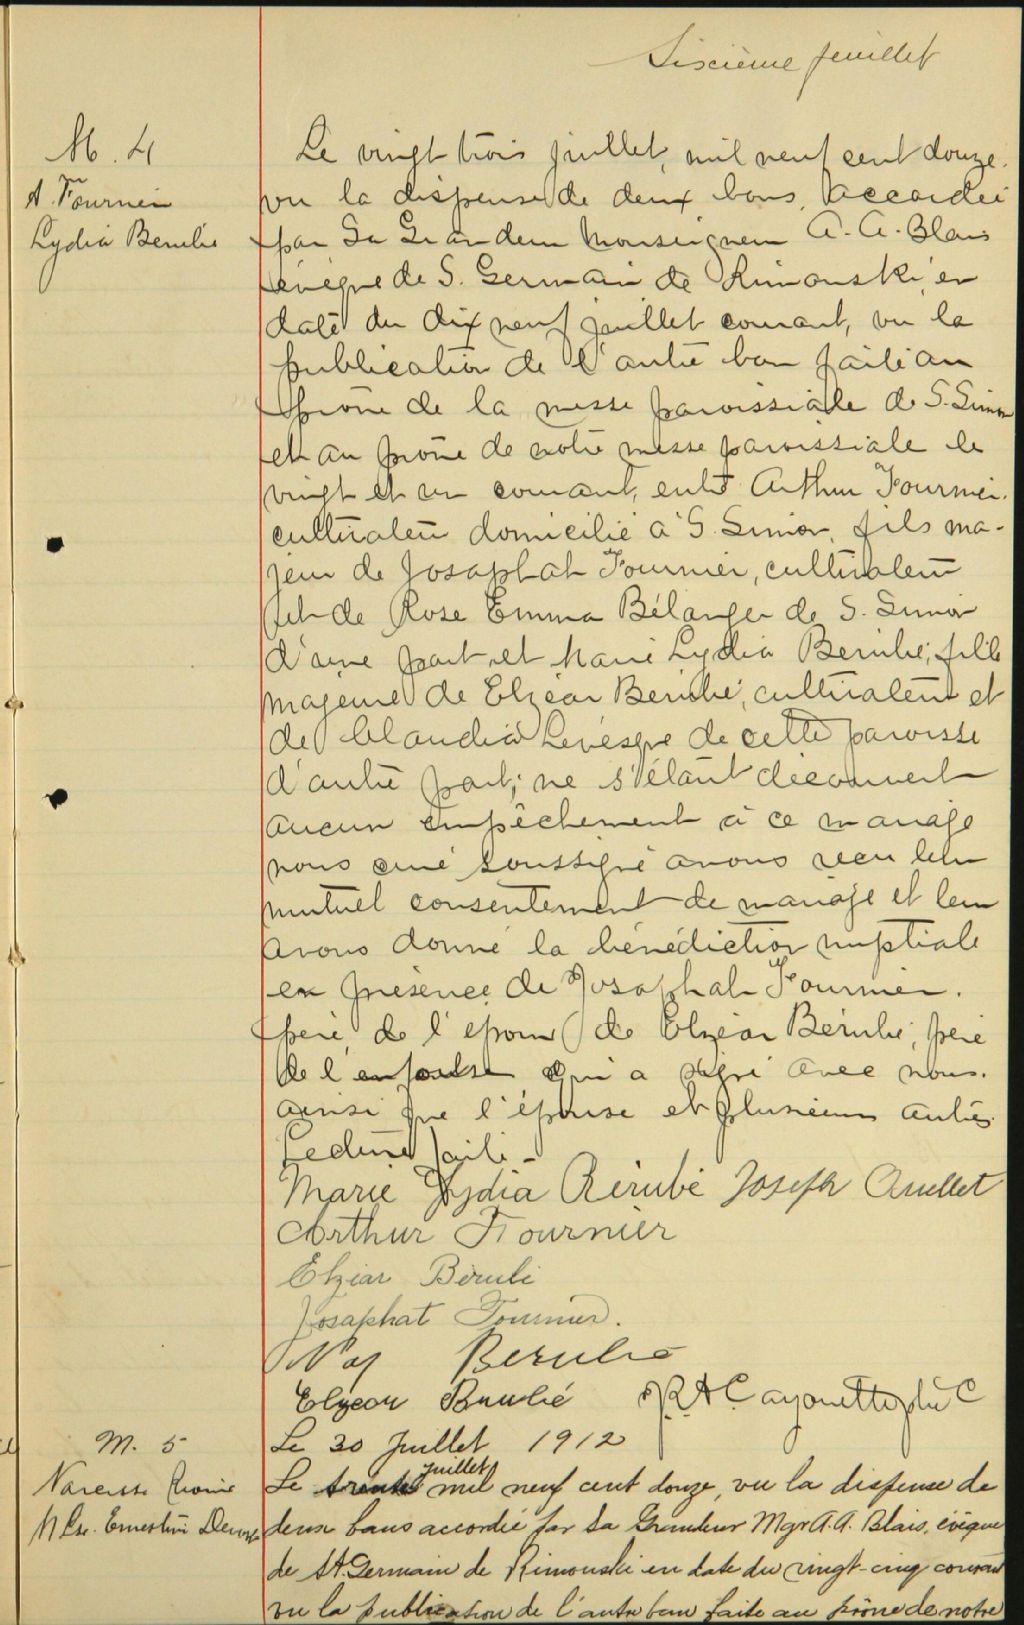 Sixième feuillet
M. 4
A. Fournier
Lydia Bérubé
Le vingt trois juillet, mil neuf cent douze.
vu la dispense de deux bans, accordée
par Sa Grandeur Monseigneur A. A. Blais
évêque de S. Germain de Rimouski, en
date du dix neuf juillet courant, vu la
publication de l'autre ban faite au
prône de la messe paroissiale de S. Simon
et au prône de notre messe paroissiale le
vingt et un courant, entre Arthur Fournier.
cultivateur domicilié à S. Simon, fils ma-
jeur de Josaphat Fournier, cultivateur
et de Rose Emma Bélanger de S. Simon
d'une part et Marie Lydia Bérubé, fille
majeure de Elzéar Bérubé, cultivateur et
de Claudia Levesque de cette paroisse
d'autre part; ne s'étant découvert
aucun empêchement à ce mariage
nous curé soussigné avons reçu leur
mutuel consentement de mariage et leur
avons donné la bénédiction nuptiale
en présence de Josaphat Fournier.
père de l'époux de Elzéar Bérubé, père
de l'épouse qui a signé avec nous.
ainsi que l'épouse et plusieurs autres
Lecture faite -
Marie Lydia Bérubé Joseph Ouellet
Arthur Fournier
Elzéar Bérubé
Josaphat Fournier.
Nap Bérubé
Elzéar Bérubé Cayouette ptre C
M. 5
Narcisse
M Ls. Ernestine
Le 30 Juillet 1912
Le trente juillet mil neuf cent douze, vu la dispense de
deux bans accordée par Sa Grandeur Mgr A. A. Blais, évêque
de St. Germain de Rimouski en date du vingt-cinq courant
vu la publication de l'autre ban faite au prône de notre